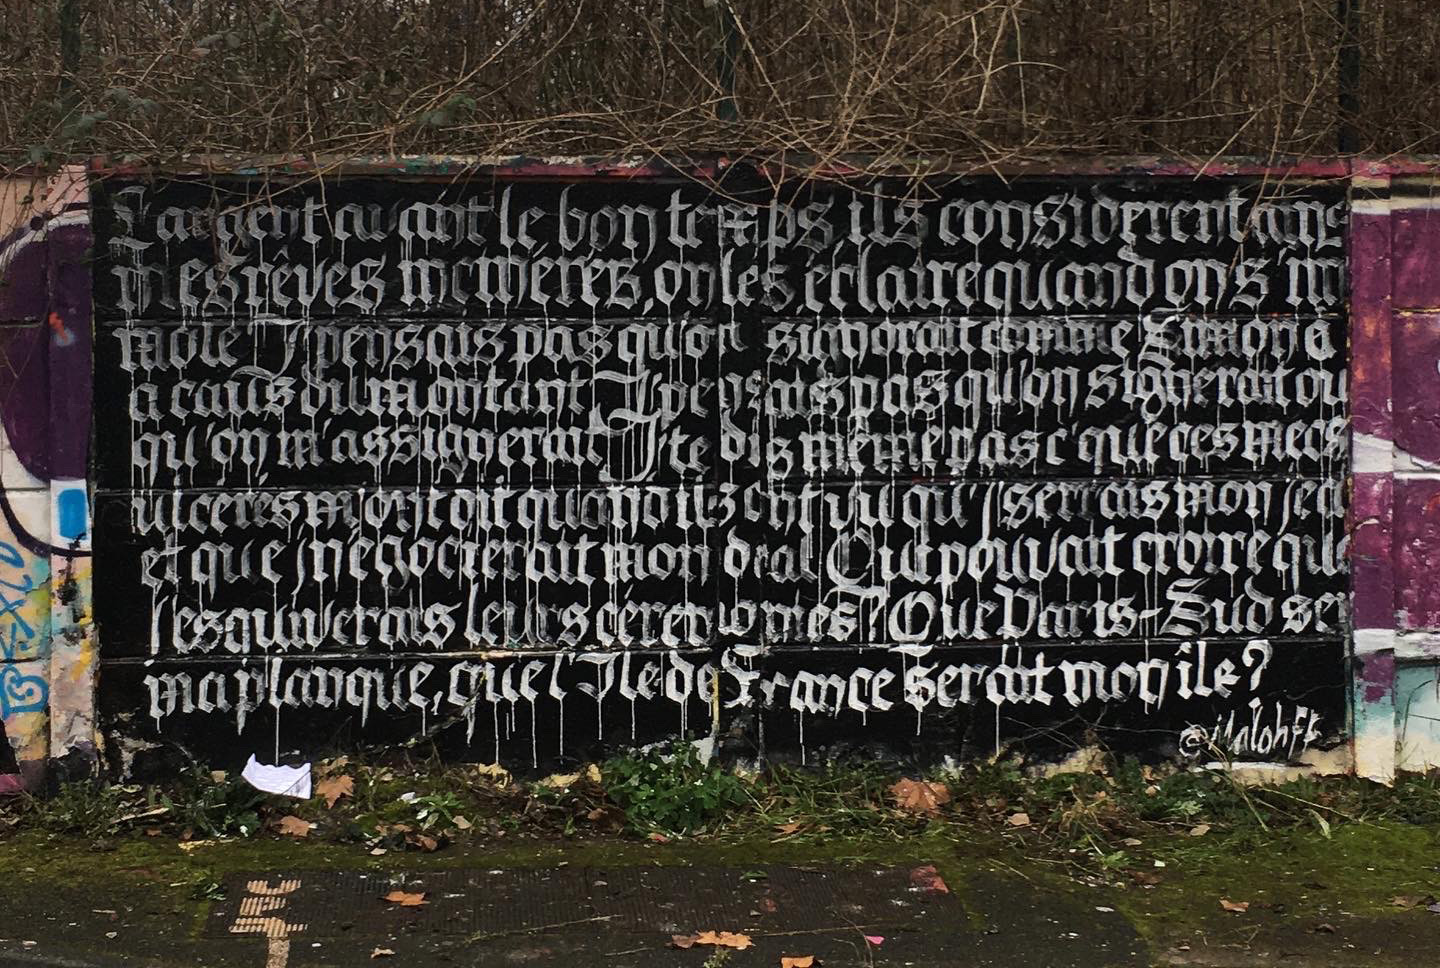 L'argent avant le bon temps, ils considèrent
mes rêves mcmières, on les éclaire quand on s'im
mole J'pensais pas qu'on signorait comme Simon à
à caus du montant J'pensais pas qu'on signerait ou
qu'on m'assignerait J'te dis même pas c'que ces mecs
ulcérés m'ont dit quand ils ont vu qu'j'serrais mon jeu
et que j'négocierait mon deal Qui pouvait croire que
j'esquiverais leurs cérémonies? Que Paris-Sud ser
ma planque, que l'Ile de France serait mon île?